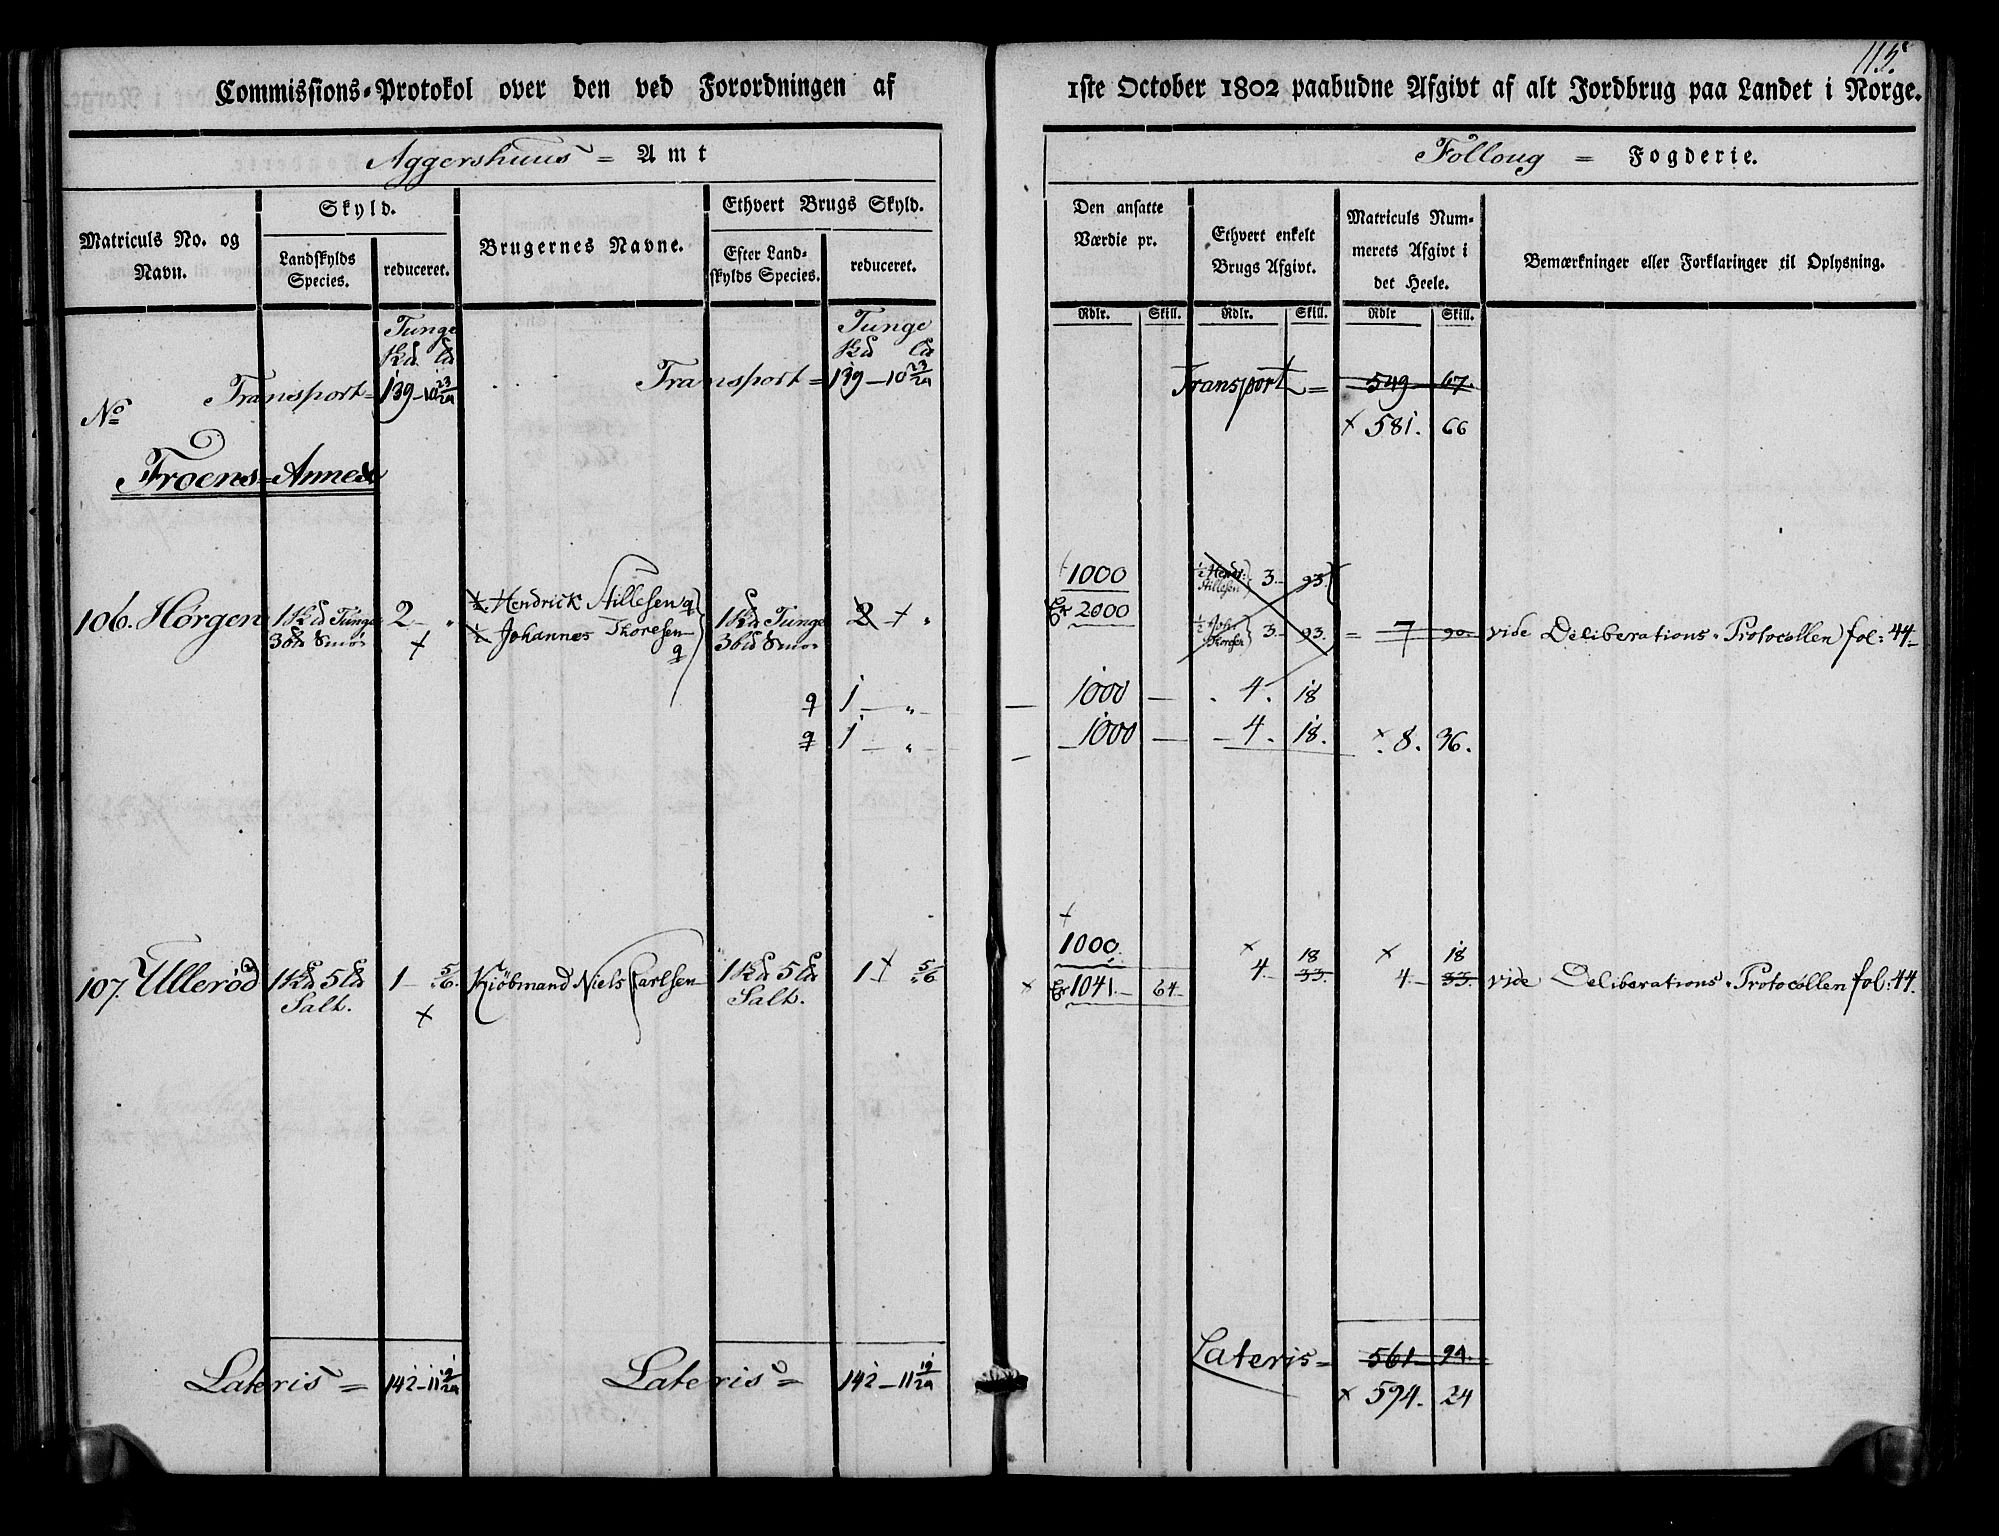 Commissions-Protokol over den ved Forordningen af
Aggershuus = Amt
Matriculs No. og Navn.
Skyld.
Landskylds Species.
reduceret.
Brugernes Navne.
Ethvert Brugs Skyld.
Efter Landskylds Species.
reduceret.
Tunge
Tunge
Transport = 139 - 10 23/24
Transport = 139 - 10 23/24
No
Froens = Annex
106. Hørgen 1 Kd Tunge 2 - "
36 ld Smør
½ Hendrick Stillesen q
½ Johannes Thoresen q
1 Kd Tunge 2 "
36 ld Smør
q 1 - "
q 1 - "
107. Ullerød 1 Kd 5 ld Salt. 1 - 5/6.
Kiöbmand Niels Carlsen 1 Kd 5 ld Salt. 1 5/6
Lateris = 142 - 11 19/24
Lateris = 142 - 11 19/24
1ste October 1802 paabudne Afgivt af alt Jordbrug paa Landet i Norge.
Folloug = Fogderie.
Den ansatte Værdie pr.
Ethvert enkelt Brugs Afgivt.
Matriculs Nummerets Afgivt i det Heele.
Bemærkninger eller Forklaringer til Oplysning.
Rdlr. Skill. Rdlr. Skill. Rdlr Skill.
Transport = 549 67.
× 581. 66
1000
½ Hend: Stillesen 3 - 93.
2000
½ Joh: Thoresen 3 - 93. = 7 90. vide Deliberations-Protocollen fol: 44
1000 - 4. 18
1000 - 4. 18. × 8. 36.
1000. × 18 × 18
× 1041 - 64 4 - 33. 4 - 33. vide Deliberations-Protocollen fol: 44.
Lateris = 561 - 94.
× 594. 24